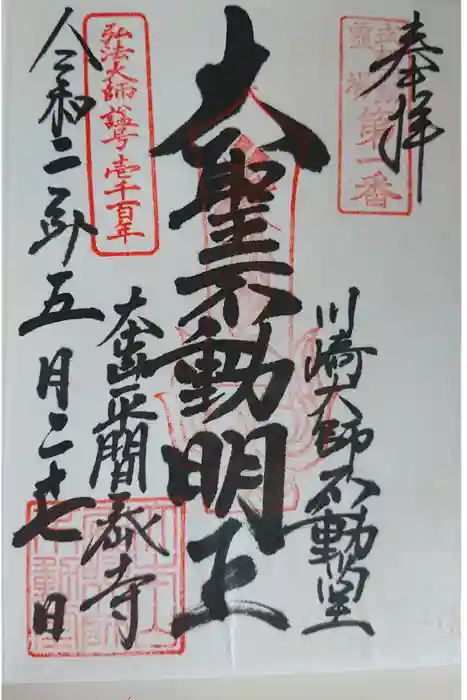 奉拝
第一番
川崎大師不動堂
大聖不動明王
弘法大師諡号壱千百年
大本山平間寺
令和二年五月二十七日